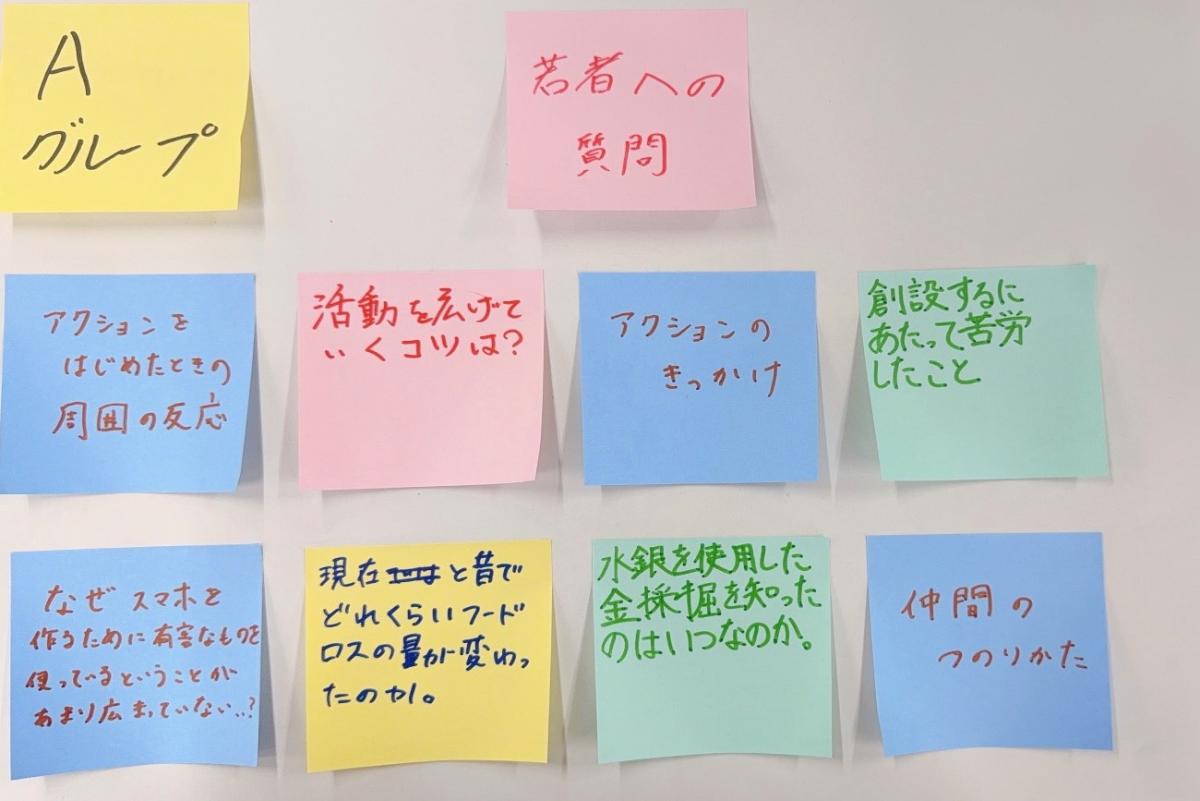 A
グループ
若者への
質問
アクションを
はじめたときの
周囲の反応
活動を広げて
いくコツは?
アクションの
きっかけ
創設するに
あたって苦労
したこと
なぜスマホを
作るために有害なものを
使っているということが
あまり広まっていない..?
現在と昔で
どれくらいフード
ロスの量が変わっ
たのか。
水銀を使用した
金採掘を知った
のはいつなのか。
仲間の
つのりかた